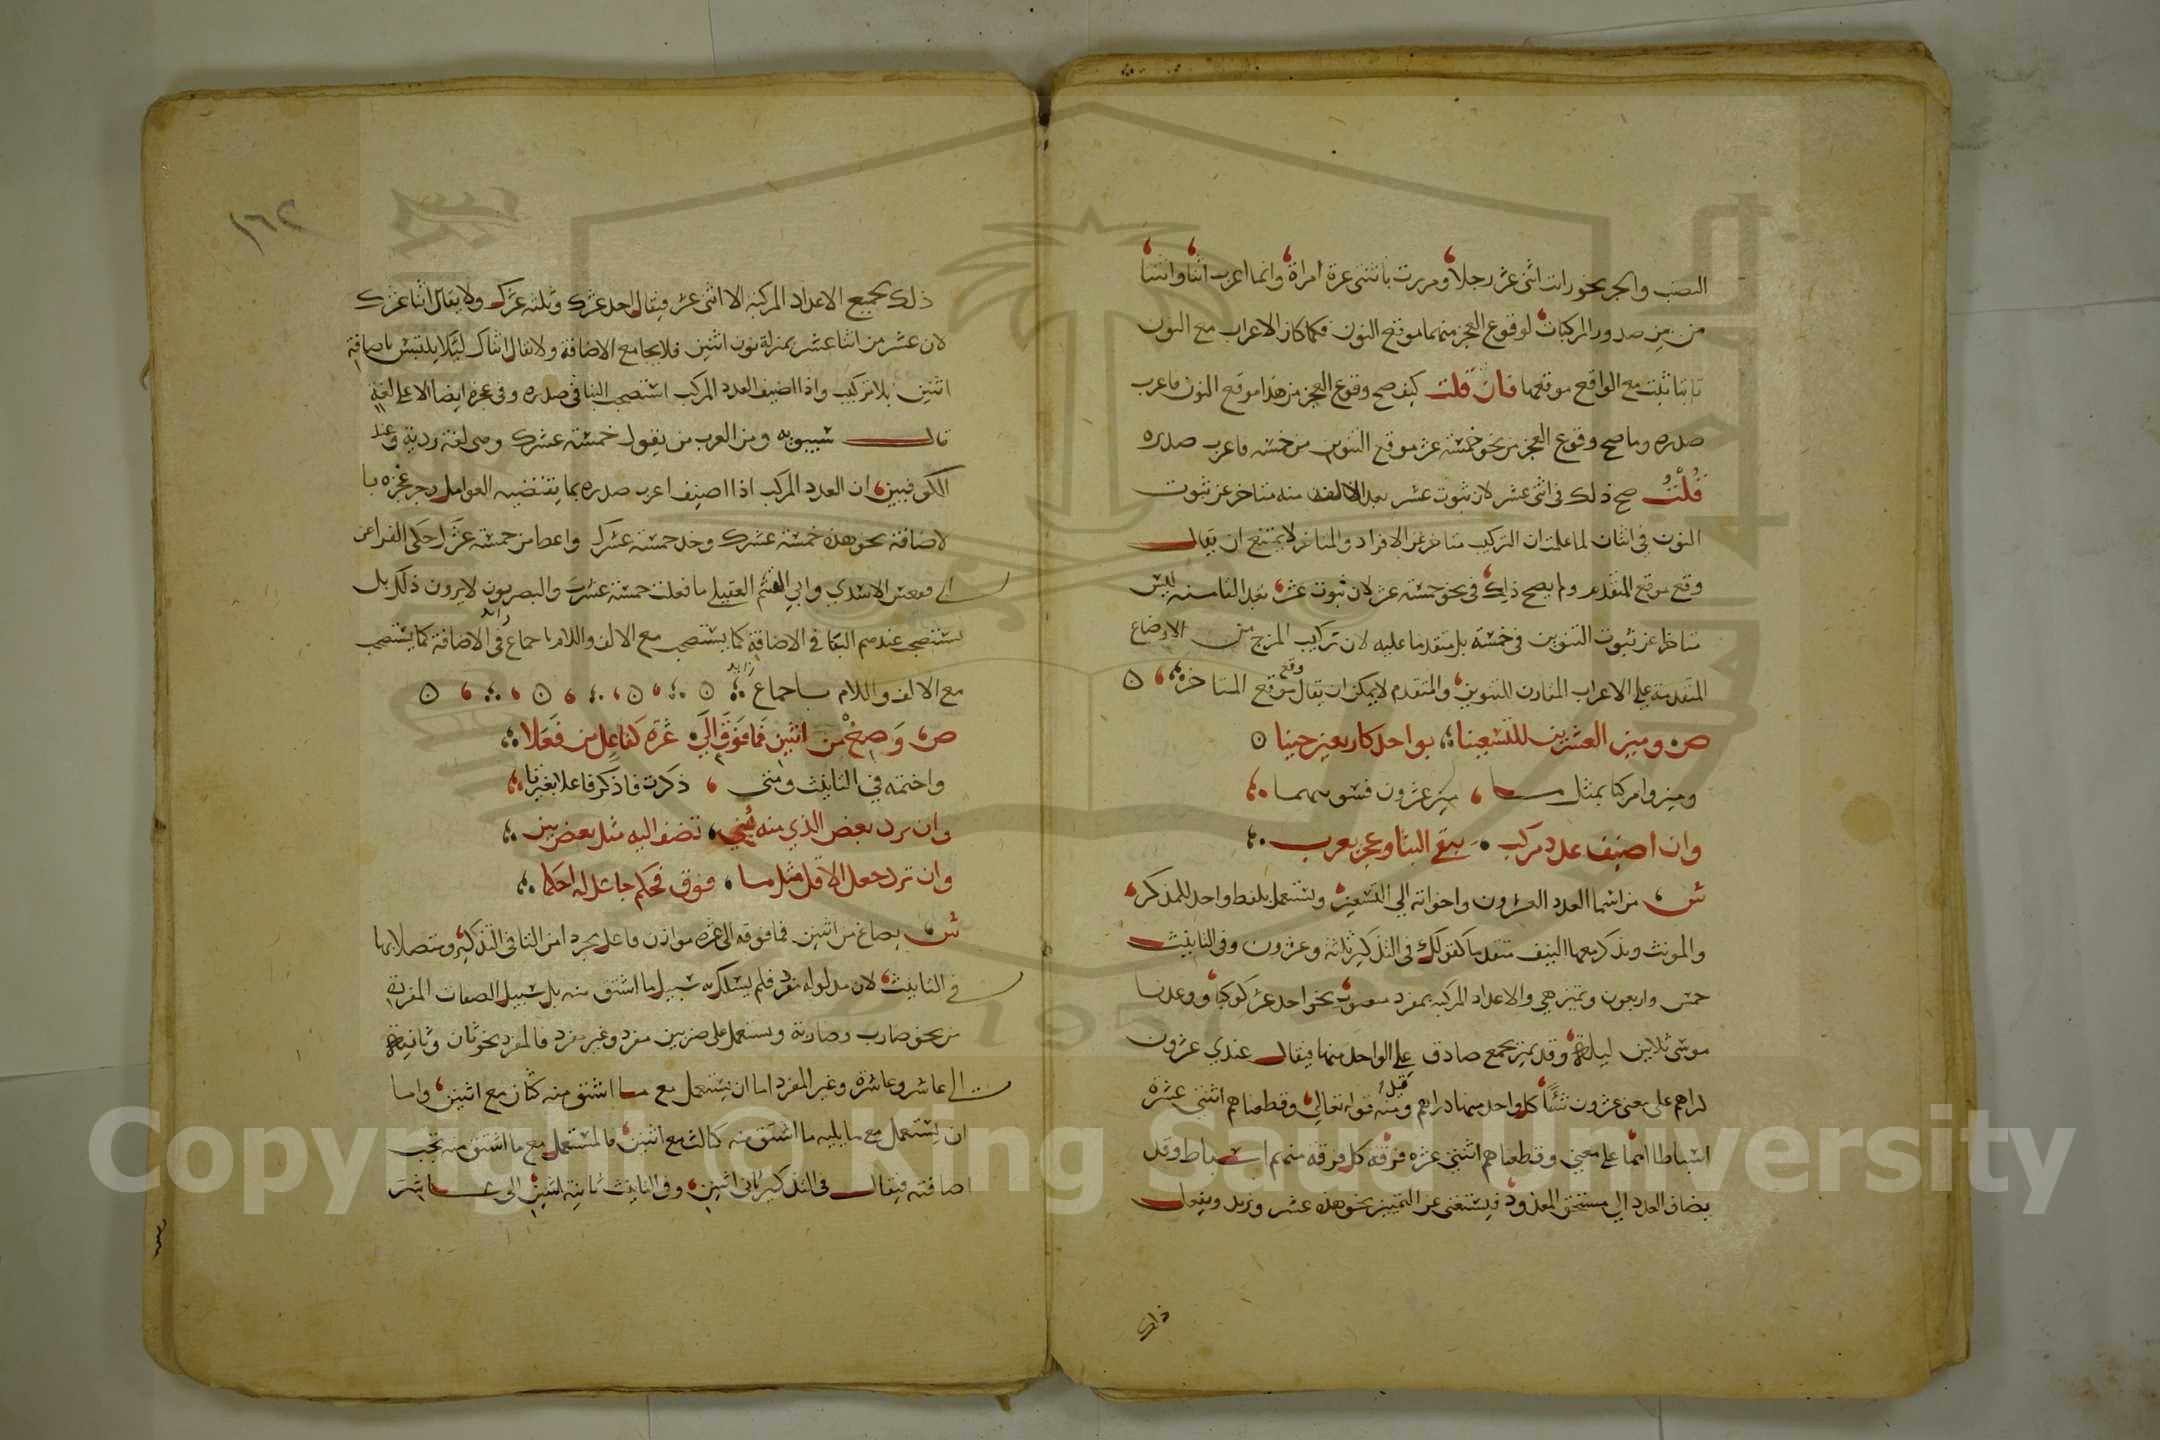 النصب والجر نحو رايت اثنى عشر رجلا ومررت باثنتى عشرة امراة وانما اعرب اثنا واثنتا
من بين صدور المركبات لوقوع العجز منهما موقع النون فكما كان الاعراب مع النون
ثابتا ثبت مع الواقع موقعها فان قلت كيف صح وقوع العجز من هذا موقع النون فاعرب
صدره وما صح وقوع العجز من نحو خمسة عشر موقع التنوين من خمسة فاعرب صدره
قلت صح ذلك في اثنى عشر لان ثبوت عشر بعد الالف منه متاخر عن ثبوت
النون في اثنان لما علمت ان التركيب متاخر عن الافراد والمتاخر لا يمتنع ان يقال
وقع موقع المتقدم ولم يصح ذلك في نحو خمسة عشر لان ثبوت عشر بعد التا منه ليس
متاخرا عن ثبوت التنوين في خمسة بل متقدما عليه لان تركيب المزج من الاوضاع
المتقدمة على الاعراب المقارن التنوين والمتقدم لا يمكن ان يقال وقع موقع المتاخر
ص وميز العشرين للتسعينا بواحد كاربعين حينا
وميزوا مركبا بمثل ما ميز عشرون فسوينهما
وان اضيف عدد مركب يبقى البنا وعجز يعرب
ش من اسما العدد العشرون واخواته الى التسعين وتستعمل بلفظ واحد للمذكر
والمونث ويذكر معها النيف متقدما كقولك في التذكير ثلاثة وعشرون وفي التانيث
خمس واربعون وتميز هي والاعداد المركبة بمفرد منصوب نحو احد عشر كوكبا ووعدنا
موسى ثلاثين ليلة وقد يميز بجمع صادق على الواحد منها فيقال عندي عشرون
دراهم على معنى عشرون شيئا كل واحد منها دراهم ومنه قوله تعالى وقطعناهم اثنتي عشرة
اسباطا امما على معنى وقطعناهم اثنتي عشرة فرقة كل فرقة منهم اسباط وقد
يضاف العدد الى مستحق المعدود فيستغنى عن التمييز نحو هذه عشر وزيد ويفعل
ذلك
١٦٢
ذلك بجميع الاعداد المركبة الا اثنى عشر فيقال احد عشرك وثلثة عشرك ولا يقال اثنا عشرك
لان عشر من اثنا عشر بمنزلة نون اثنين فلا يجامع الاضافة ولا يقال اثناك ليلا يلتبس باضافة
اثنين بلا تركيب واذا اضيف العدد المركب استصحب البنا في صدره وفي عجزه ايضا الا على لغة
قال سيبويه ومن العرب من يقول خمسة عشرك وهى لغة ردية وعند
الكوفيين ان العدد المركب اذا اضيف اعرب صدره بما يقتضيه العوامل وجر عجزه با
لاضافة نحو هذه خمسة عشرك وخذ خمسة عشرك واعط من خمسة عشرك حكى الفرا عن
ابي فقعس الاسدي وابي الهيثم العقيلي ما فعلت خمسة عشرك والبصريون لا يرون ذلك بل
يستصحب عندهم البنا في الاضافة كما يستصحب مع الالف واللام باجماع في الاضافة كما يستصحب
مع الالف واللام باجماع
ص وصغ من اثنين فما فوق الى عشرة كفاعل من فعلا
واختمه في التانيث ومتى ذكرت فاذكر فاعلا بغير تا
وان ترد بعض الذي منه بني تضف اليه مثل بعض بين
وان ترد جعل الاقل مثل ما فوق فحكم جاعل له احكما
ش يصاغ من اثنين فما فوقه الى عشرة موازن فاعل مجردا من التا في التذكير ومتصلا بها
في التانيث لان مدلوله مفرد فلم يسلك به سبيل ما اشتق منه بل سبيل الصفات المفردة
من نحو ضارب وضاربة ويستعمل على ضربين مفرد وغير مفرد فالمفرد نحو ثان وثانية
الى عاشر وعاشرة وغير المفرد اما ان يستعمل مع ما اشتق منه كثان مع اثنين واما
ان يستعمل مع ما يليه ما اشتق منه كثالث مع اثنين فالمستعمل مع ما اشتق منه يجب
اضافته فيقال في التذكير ثاني اثنين وفي التانيث ثانية اثنين الى عاشر
Copyright © King Saud University
1957